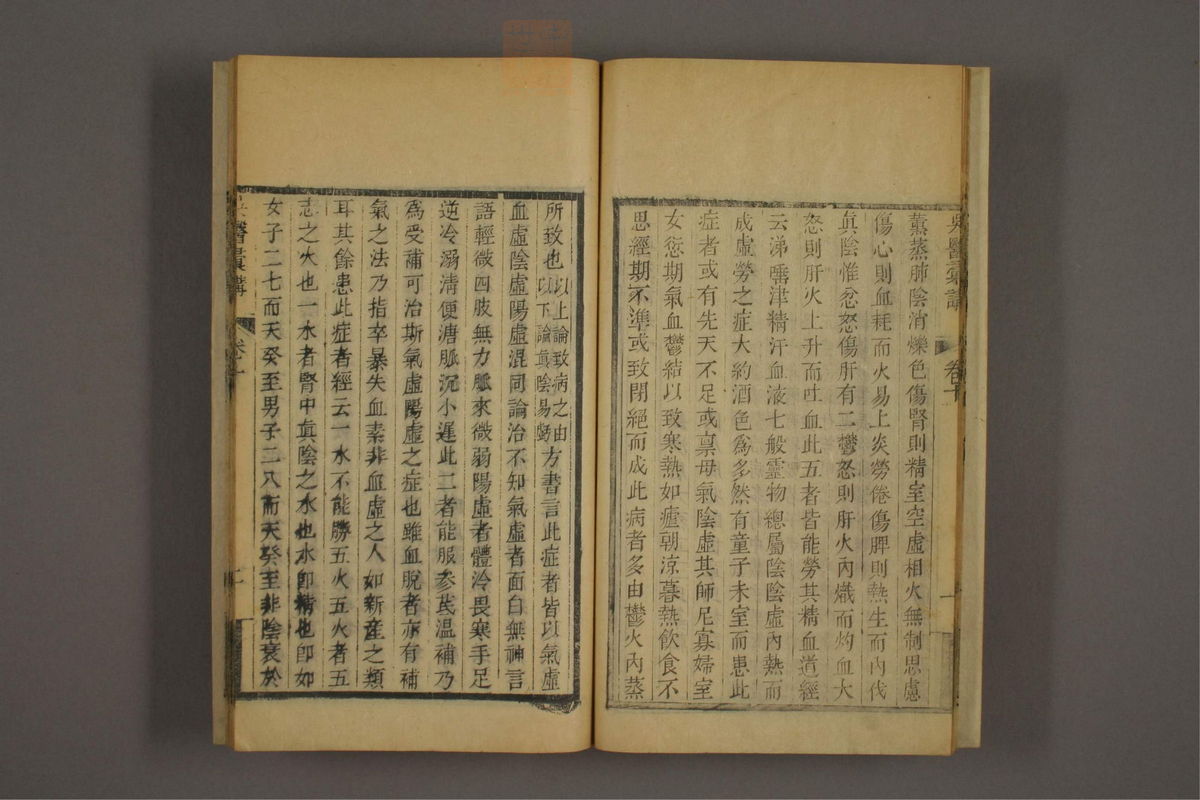 吳醫彙講
卷十
一
薰蒸肺陰消爍色傷腎則精室空虛相火無制思慮
傷心則血耗而火易上炎勞倦傷脾則熱生而內伐
眞陰惟忿怒傷肝有二鬱怒則肝火內熾而灼血大
怒則肝火上升而吐血此五者皆能勞其精血道經
云涕唾津精汗血液七般靈物總屬陰陰虛內熱而
成虛勞之症大約酒色爲多然有童子未室而患此
症者或有先天不足或稟母氣陰虛其師尼寡婦室
女愆期氣血鬱結以致寒熱如瘧朝涼暮熱飲食不
思經期不準或致閉絕而成此病者多由鬱火內蒸
所致也以上論致病之由以下論眞陰易虧方書言此症者皆以氣虛
血虛陰虛陽虛混同論治不知氣虛者面白無神言
語輕微四肢無力脈來微弱陽虛者體冷畏寒手足
逆冷溺清便溏脈沉小遲此二者能服參芪温補乃
爲受補可治斯氣虛陽虛之症也雖血脫者亦有補
氣之法乃指卒暴失血素非血虛之人如新産之類
耳其餘患此症者經云一水不能勝五火五火者五
志之火也一水者腎中眞陰之水也水卽精也卽如
女子二七而天癸至男子二八而天癸至非陰衰於
吳醫彙講
卷十
二